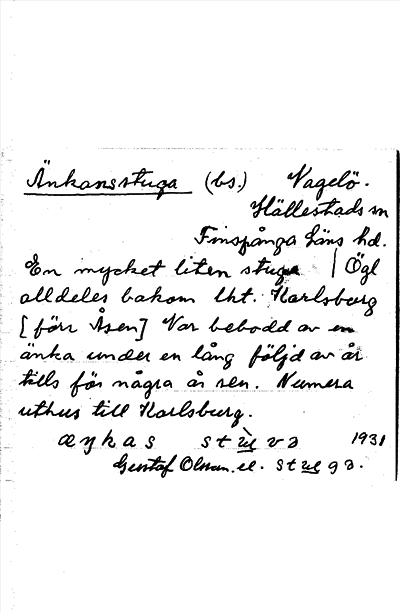 Änkansstuga (bs.) Vagelö.
Hällestads sn
Finspånga läns hd.
En mycket liten stuga / Ögl
alldeles bakom lht. Karlsborg
[förr Åsen] Var bebodd av en
änka under en lång följd av år
tills för några år sen. Numera
uthus till Karlsborg.
æŋkas 1931
Gustaf Olsson. el.